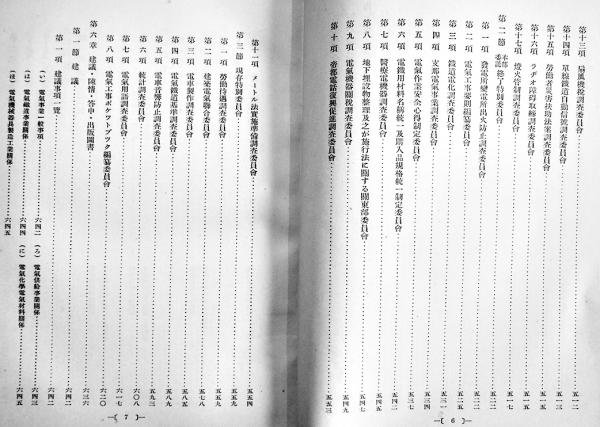 第十三項 扇風機稅調査委員會 五一二
第十四項 單線鐵道自動信號調査委員會 五一二
第十五項 勞働者災害扶助法案調査委員會
第十六項 ラヂオ障碍取締調査委員會
第十七項 燈火管制調査委員會 五一七
第二節 本部委託 終了特別委員會
第一項 發電所變電所出火防止調査委員會
第二項 電氣工事要則編纂委員會 五二二
第三項 鐵道電化調査委員會
第四項 支那電氣事業調査委員會
第五項 電氣作業安全心得制定委員會 五三一
第六項 電鐵用材料名稱統一及購入品規格統一制定委員會
第七項 醫療電機器調査委員會
第八項 地下埋設物整理及之が施行法に關する關東部委員會
第九項 電氣機器關稅調査委員會 五四九
第十項 帝都電話復興促進調査委員會 五五三
—〔 6 〕—
第十一項 メートル法實施準備調査委員會 五五四
第三節 現存特別委員會 五五九
第一項 勞働待遇調査委員會 五五九
第二項 建築電氣聯合委員會 五七八
第三項 電車製作調査委員會 五八五
第四項 電氣鐵道基準調査委員會 五八九
第五項 電車音響防止調査委員會 五八九
第六項 統計調査委員會 五九三
第七項 電氣用語調査委員會 六〇八
第八項 電氣工事ポケツトブツク編纂委員會 六二〇
第六章 建議・陳情・答申・出版圖書 六三六
第一節 建議 六四二
第一項 建議事項一覽 六四二
(い) 電氣事業一般事項 六四二 (ろ) 電氣供給事業關係 六四三
(は) 電氣鐵道事業關係 六四四 (に) 電氣化學電氣材料關係 六四五
(ほ) 電氣機械器具製造工業關係 六四五
—〔 7 〕—